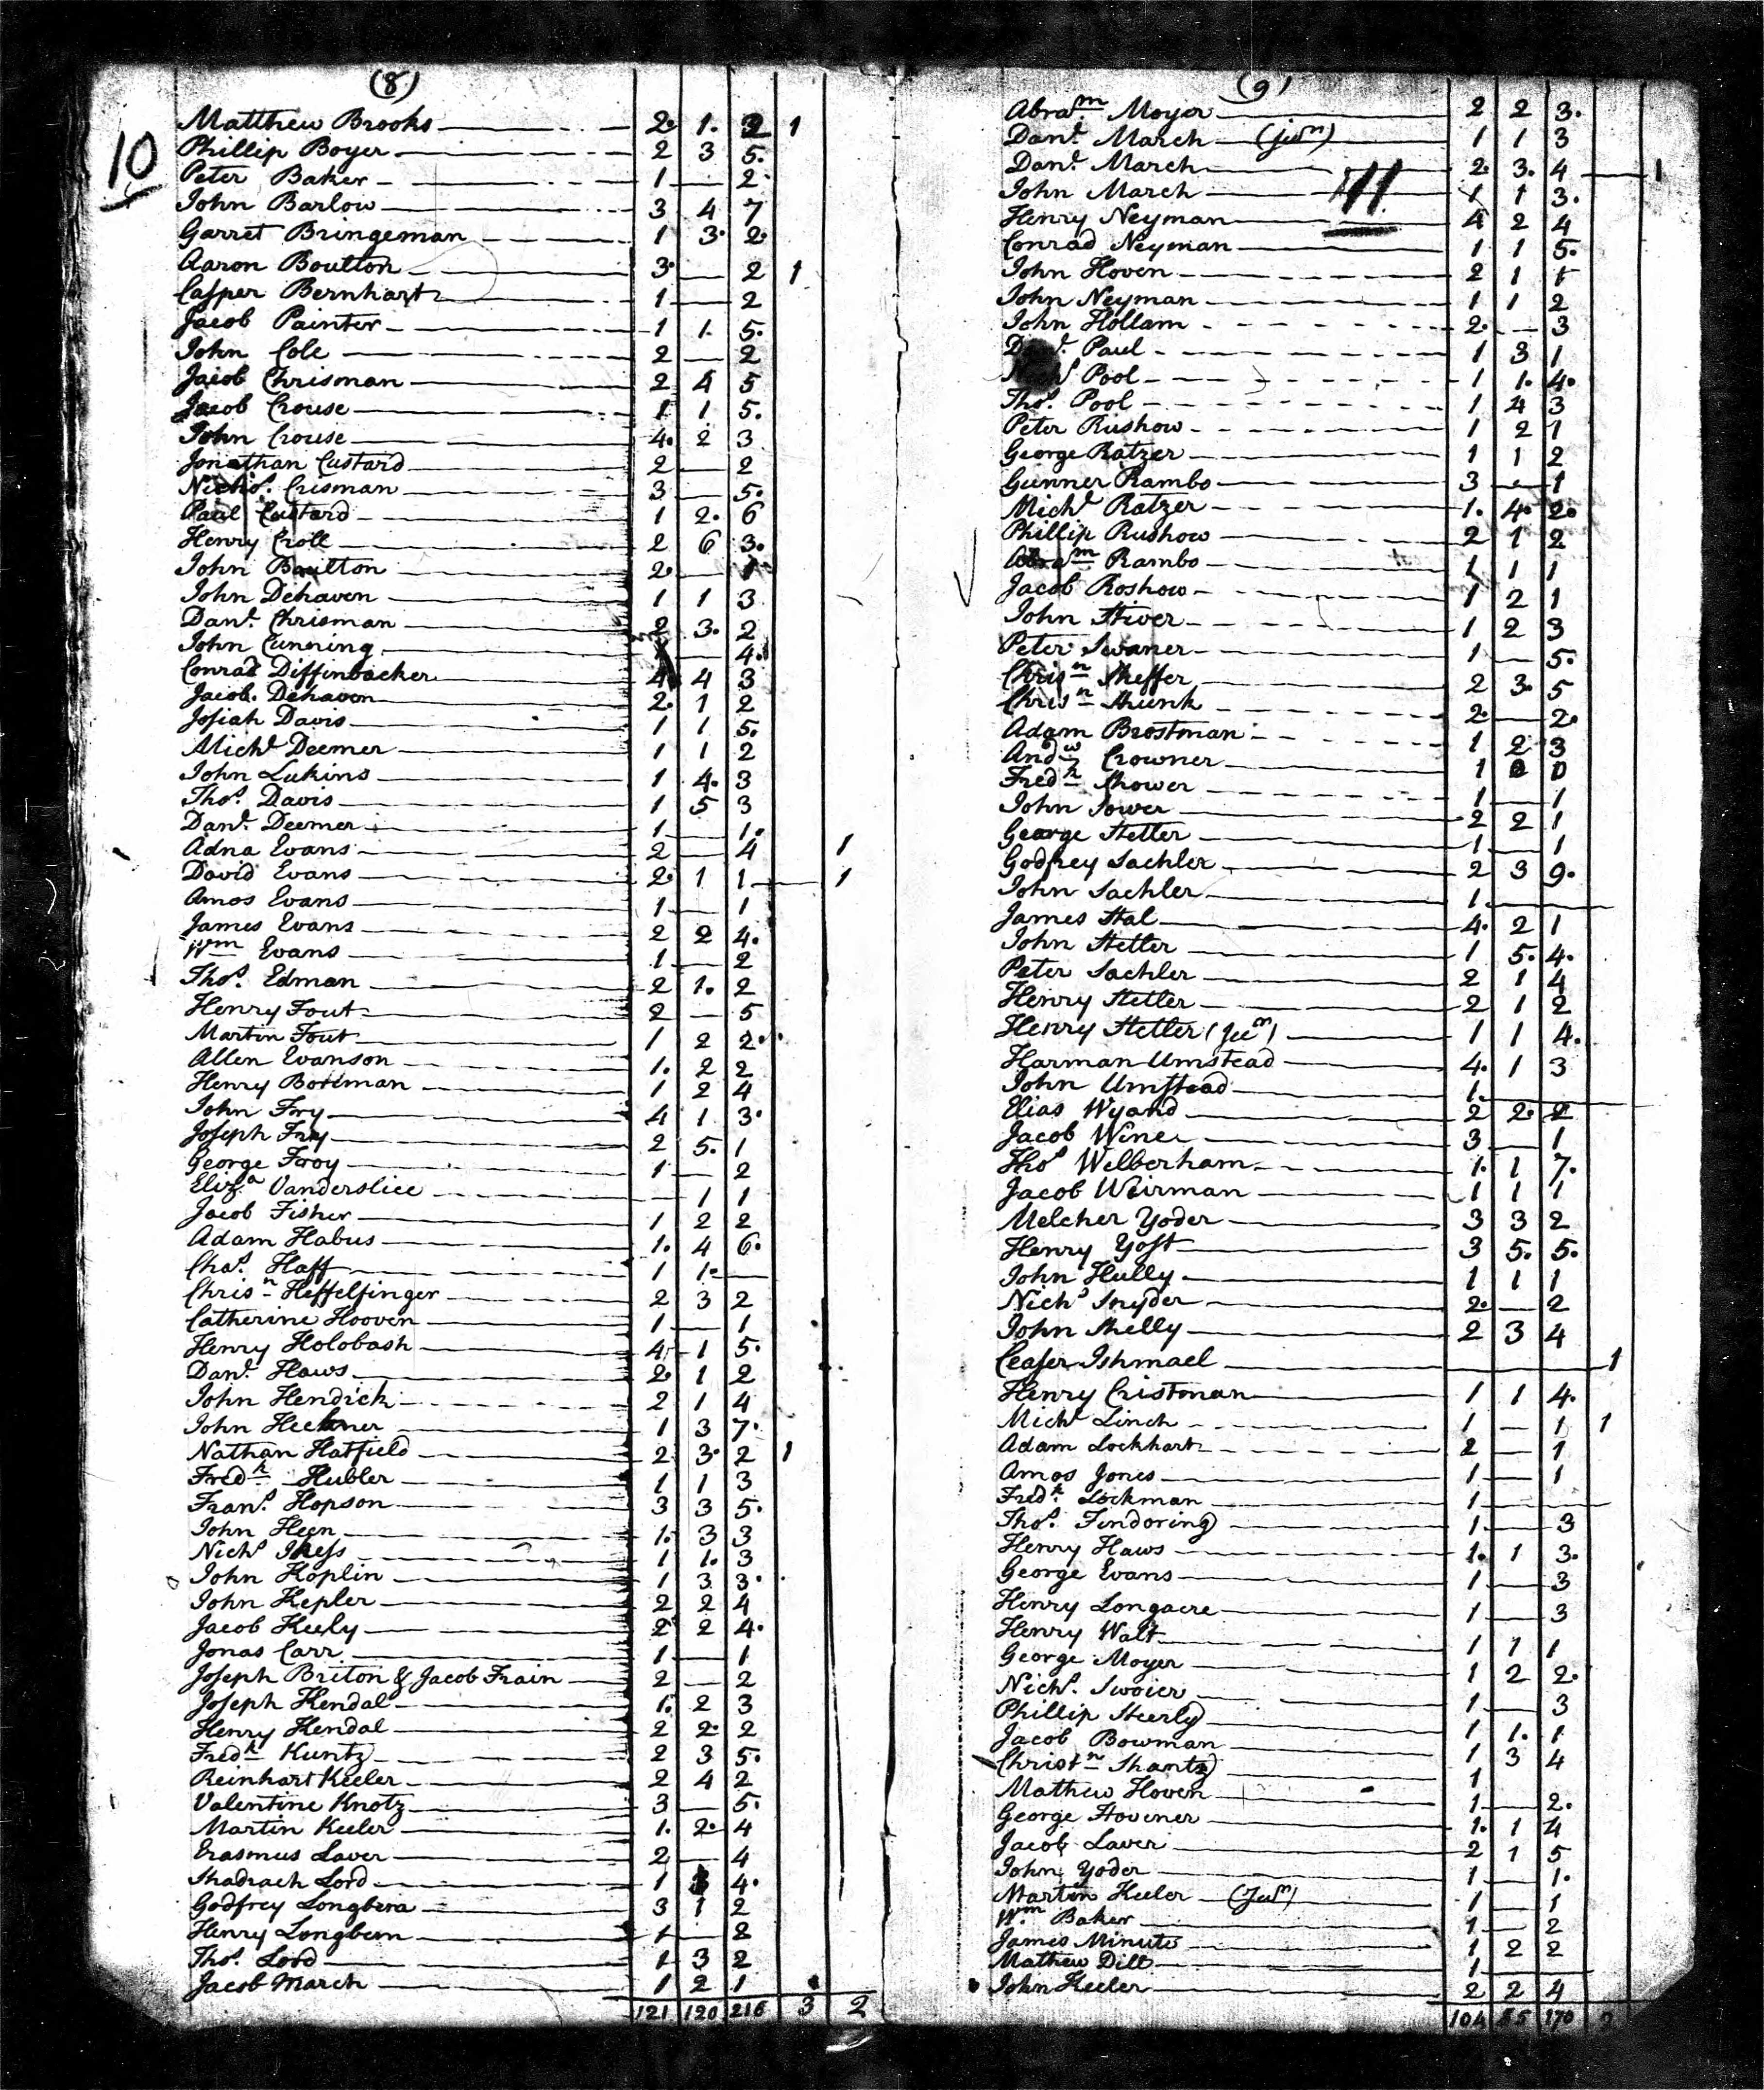 (8)
10
Matthew Brooks 2 1 2 1
Phillip Boyer 2 3 5
Peter Baker 1 — 2
John Barlow 3 4 7
Garret Bringeman 1 3 2
Aaron Boulton 3 — 2 1
Casper Bernhart 1 — 2
Jacob Painter 1 1 5
John Cole 2 — 2
Jacob Chrisman 2 4 5
Jacob Crouse 1 1 5
John Crouse 4 2 3
Jonathan Custard 2 — 2
Nichos. Crisman 3 — 5
Paul Custard 1 2 6
Henry Croll 2 6 3
John Boulton 2 — 1
John Dehaven 1 1 3
Danl. Chrisman 2 3 2
John Cunning — 4
Conrad Diffinbacker 4 4 3
Jacob Dehaven 2 1 2
Josiah Davis 1 1 5
Michl Deemer 1 1 2
John Lukins 1 4 3
Thos. Davis 1 5 3
Danl. Deemer 1 — 1
Adna Evans 2 — 4 1
David Evans 2 1 1 — 1
Amos Evans 1 — 1
James Evans 2 2 4
Wm Evans 1 — 2
Thos. Edman 2 1 2
Henry Fout 2 — 5
Martin Fout 1 2 2
Allen Evanson 1 2 2
Henry Borman 1 2 4
John Fry 4 1 3
Joseph Fry 2 5 1
George Froy 1 — 2
Eliza Vanderslice — 1 1
Jacob Fisher 1 2 2
Adam Habus 1 4 6
Chas. Haff 1 1 —
Chrisn Heffelfinger 2 3 2
Catherine Hooven 1 — 1
Henry Holobash 4 1 5
Danl. Haws 2 1 2
John Hendrick 2 1 4
John Heebner 1 3 7
Nathan Hatfield 2 3 2 1
Fredk Hubler 1 1 3
Frans. Hopson 3 3 5
John Heen 1 3 3
Nichs 1 1 3
John Koplin 1 3 3
John Kepler 2 2 4
Jacob Keely 2 2 4
Jonas Carr 1 — 1
Joseph Briton & Jacob Frain 2 — 2
Joseph Kendal 1 2 3
Henry Kendal 2 2 2
Fredk Kuntz 2 3 5
Reinhart Keeler 2 4 2
Valentine Knotz 3 — 5
Martin Keeler 1 2 4
Erasmus Laver 2 — 4
Shadrach Lord 1 3 4
Godfrey Longbera 3 1 2
Henry Longbern 1 — 2
Thos. Lord 1 3 2
Jacob March 1 2 1
121 120 216 3 2
(9)
Abram Moyer 2 2 3
Danl. March (junr) 1 1 3
Danl. March 2 3 4 — 1
11
John March 1 1 3
Henry Neyman 4 2 4
Conrad Neyman 1 1 5
John Hoven 2 1 1
John Neyman 1 1 2
John Hollam 2 — 3
Paul 1 3 1
Pool 1 1 4
Thos. Pool 1 4 3
Peter Rushow 1 2 1
George Ratzer 1 1 2
Gunner Rambo 3 — 1
Michl Ratzer 1 4 2
Phillip Rushow 2 1 2
Abram Rambo 1 1 1
Jacob Roshow 1 2 1
John Stiver 1 2 3
Peter Swaner 1 — 5
Chrisn Sheffer 2 3 5
Chrisn Shunk 2 — 2
Adam Brostman 1 2 3
Andw Crowner 1 0 0
Fredk Shower 1 — 1
John Sower 2 2 1
George Stetler 1 — 1
Godfrey Sachler 2 3 9
John Sachler 1 —
James Stal 4 2 1
John Stetler 1 5 4
Peter Sachler 2 1 4
Henry Stetler 2 1 2
Henry Stetler 1 1 4
Harman Umstead 4 1 3
John Umstead 1 —
Elias Wyand 2 2 2
Jacob Wine 3 — 1
Thos Welberham 1 1 7
Jacob Weirman 1 1 1
Melcher Yoder 3 3 2
Henry Yost 3 5 5
John Hully 1 1 1
Nichs Snyder 2 — 2
John Shelly 2 3 4
Ceaser Ishmael — 1
Henry Cristman 1 1 4
Michl Linch 1 — 1 1
Adam Lockhart 2 — 1
Amos Jones 1 — 1
Fredk. Lockman 1 —
Thos. Findoring 1 — 3
Henry Haws 1 1 3
George Evans 1 — 3
Henry Longacre 1 — 3
Henry Walt 1 1 1
George Moyer 1 2 2
Nichs. Swoier 1 — 3
Phillip Steerly 1 1 1
Jacob Bowman 1 3 4
Christn Shantz 1
Mathew Hoven 1 — 2
George Hovener 1 1 4
Jacob Laver 2 1 5
John Yoder 1 — 1
Martin Keeler (Junr) 1 — 1
Wm Baker 1 — 2
James Minuts 1 2 2
Mathew Dill 1 —
John Keeler 2 2 4
104 85 170 2